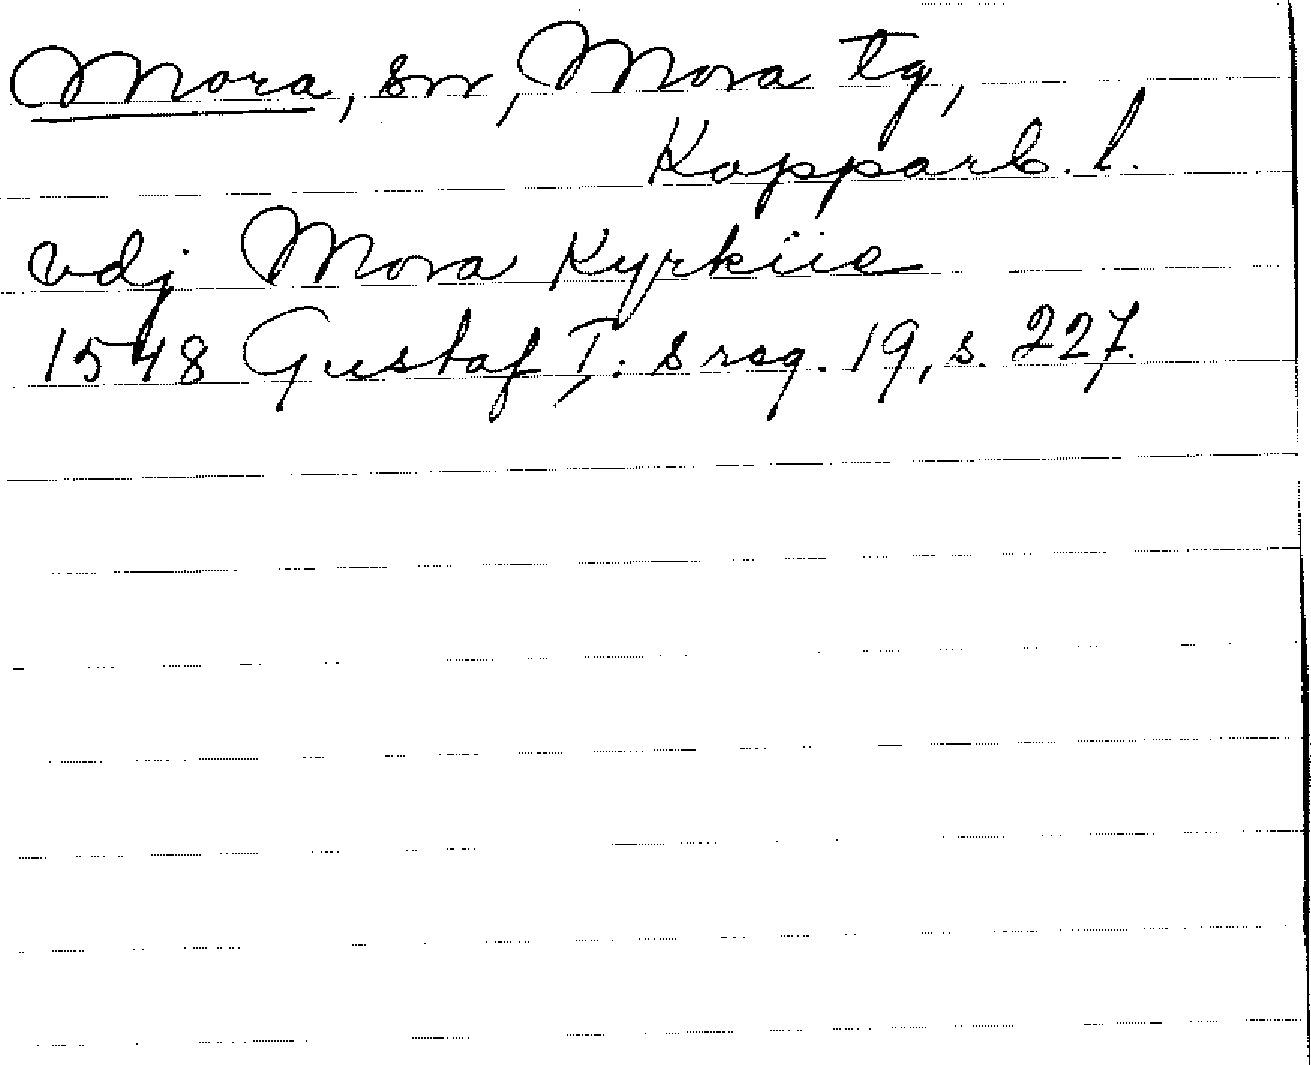 Mora, sn, Mora tg,
Kopparb. l.
vdj Mora Kyrkiie
1548 Gustaf I: s reg. 19, s. 227.